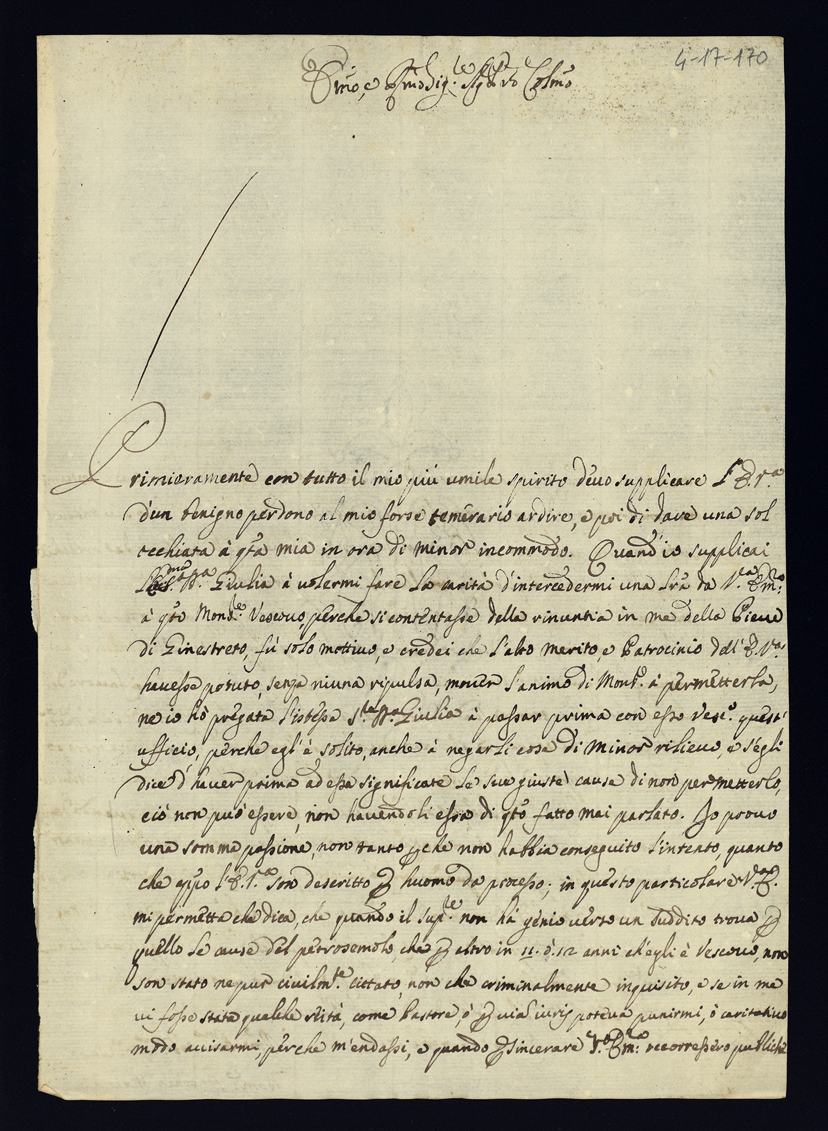 4-17-170
Em̃o, e Rm̃o Sig.re Sig.re Pro͂n Colm̃o
Primieramente con tutto il mio più umile spirito devo supplicare l'E.V.a
d'un benigno perdono al mio forse temerario ardire, e poi di dare una sol
occhiata à q̃ta mia in ora di minor incommodo. Quand'io supplicai
Giulia à volermi fare la carità d'intercedermi una lr̃a da V.a Em̃a
à q̃to Mons.re Vescovo, perche si contentasse della rinuntia in me della Pieve
di Ginestreto, fù solo mottivo, e credei che l'alto merito, e Patrocinio dell'E.V.a
havesse potuto, senza niuna ripulsa, mover l'animo di Mons.re à permetterla,
ne io hò pregata l'istessa S.ra Giulia à passar prima con esso Vesc.o quest'
ufficio, perche egl'è solito, anche à negarli cose di minor rilievo, e s'egli
dice d'haver prima ad essa significate le sue giuste cause di non permetterlo,
ciò non può essere, non havendoli essa di q̃to fatto mai parlato. Io provo
una somma passione, non tanto perche non habbia conseguito l'intento, quanto
che apƿo l'E.V.a son descritto per huomo da processo; in questo particolare V.a E.
mi permetta che dica, che quando il sup.re non hà genio verso un suddito trova per
quello le cause del petrosemolo, che per altro in 11. ò 12 anni ch'egli è Vescovo, non
son stato ne pur civilm.te cittato, non che criminalmente inquisito, e se in me
vi fosse stata qualche reità, come Pastore, ò per via iuris poteva punirmi, ò caritativo
modo avisarmi, perche m'endassi, e quando per sincerare V.a Em̃a occorressero publiche